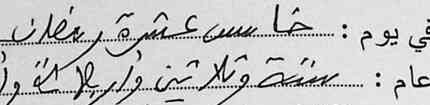 في يوم : خامس عشرة رمضان
عام : ستة وثلاثين وأربعمائة وأ